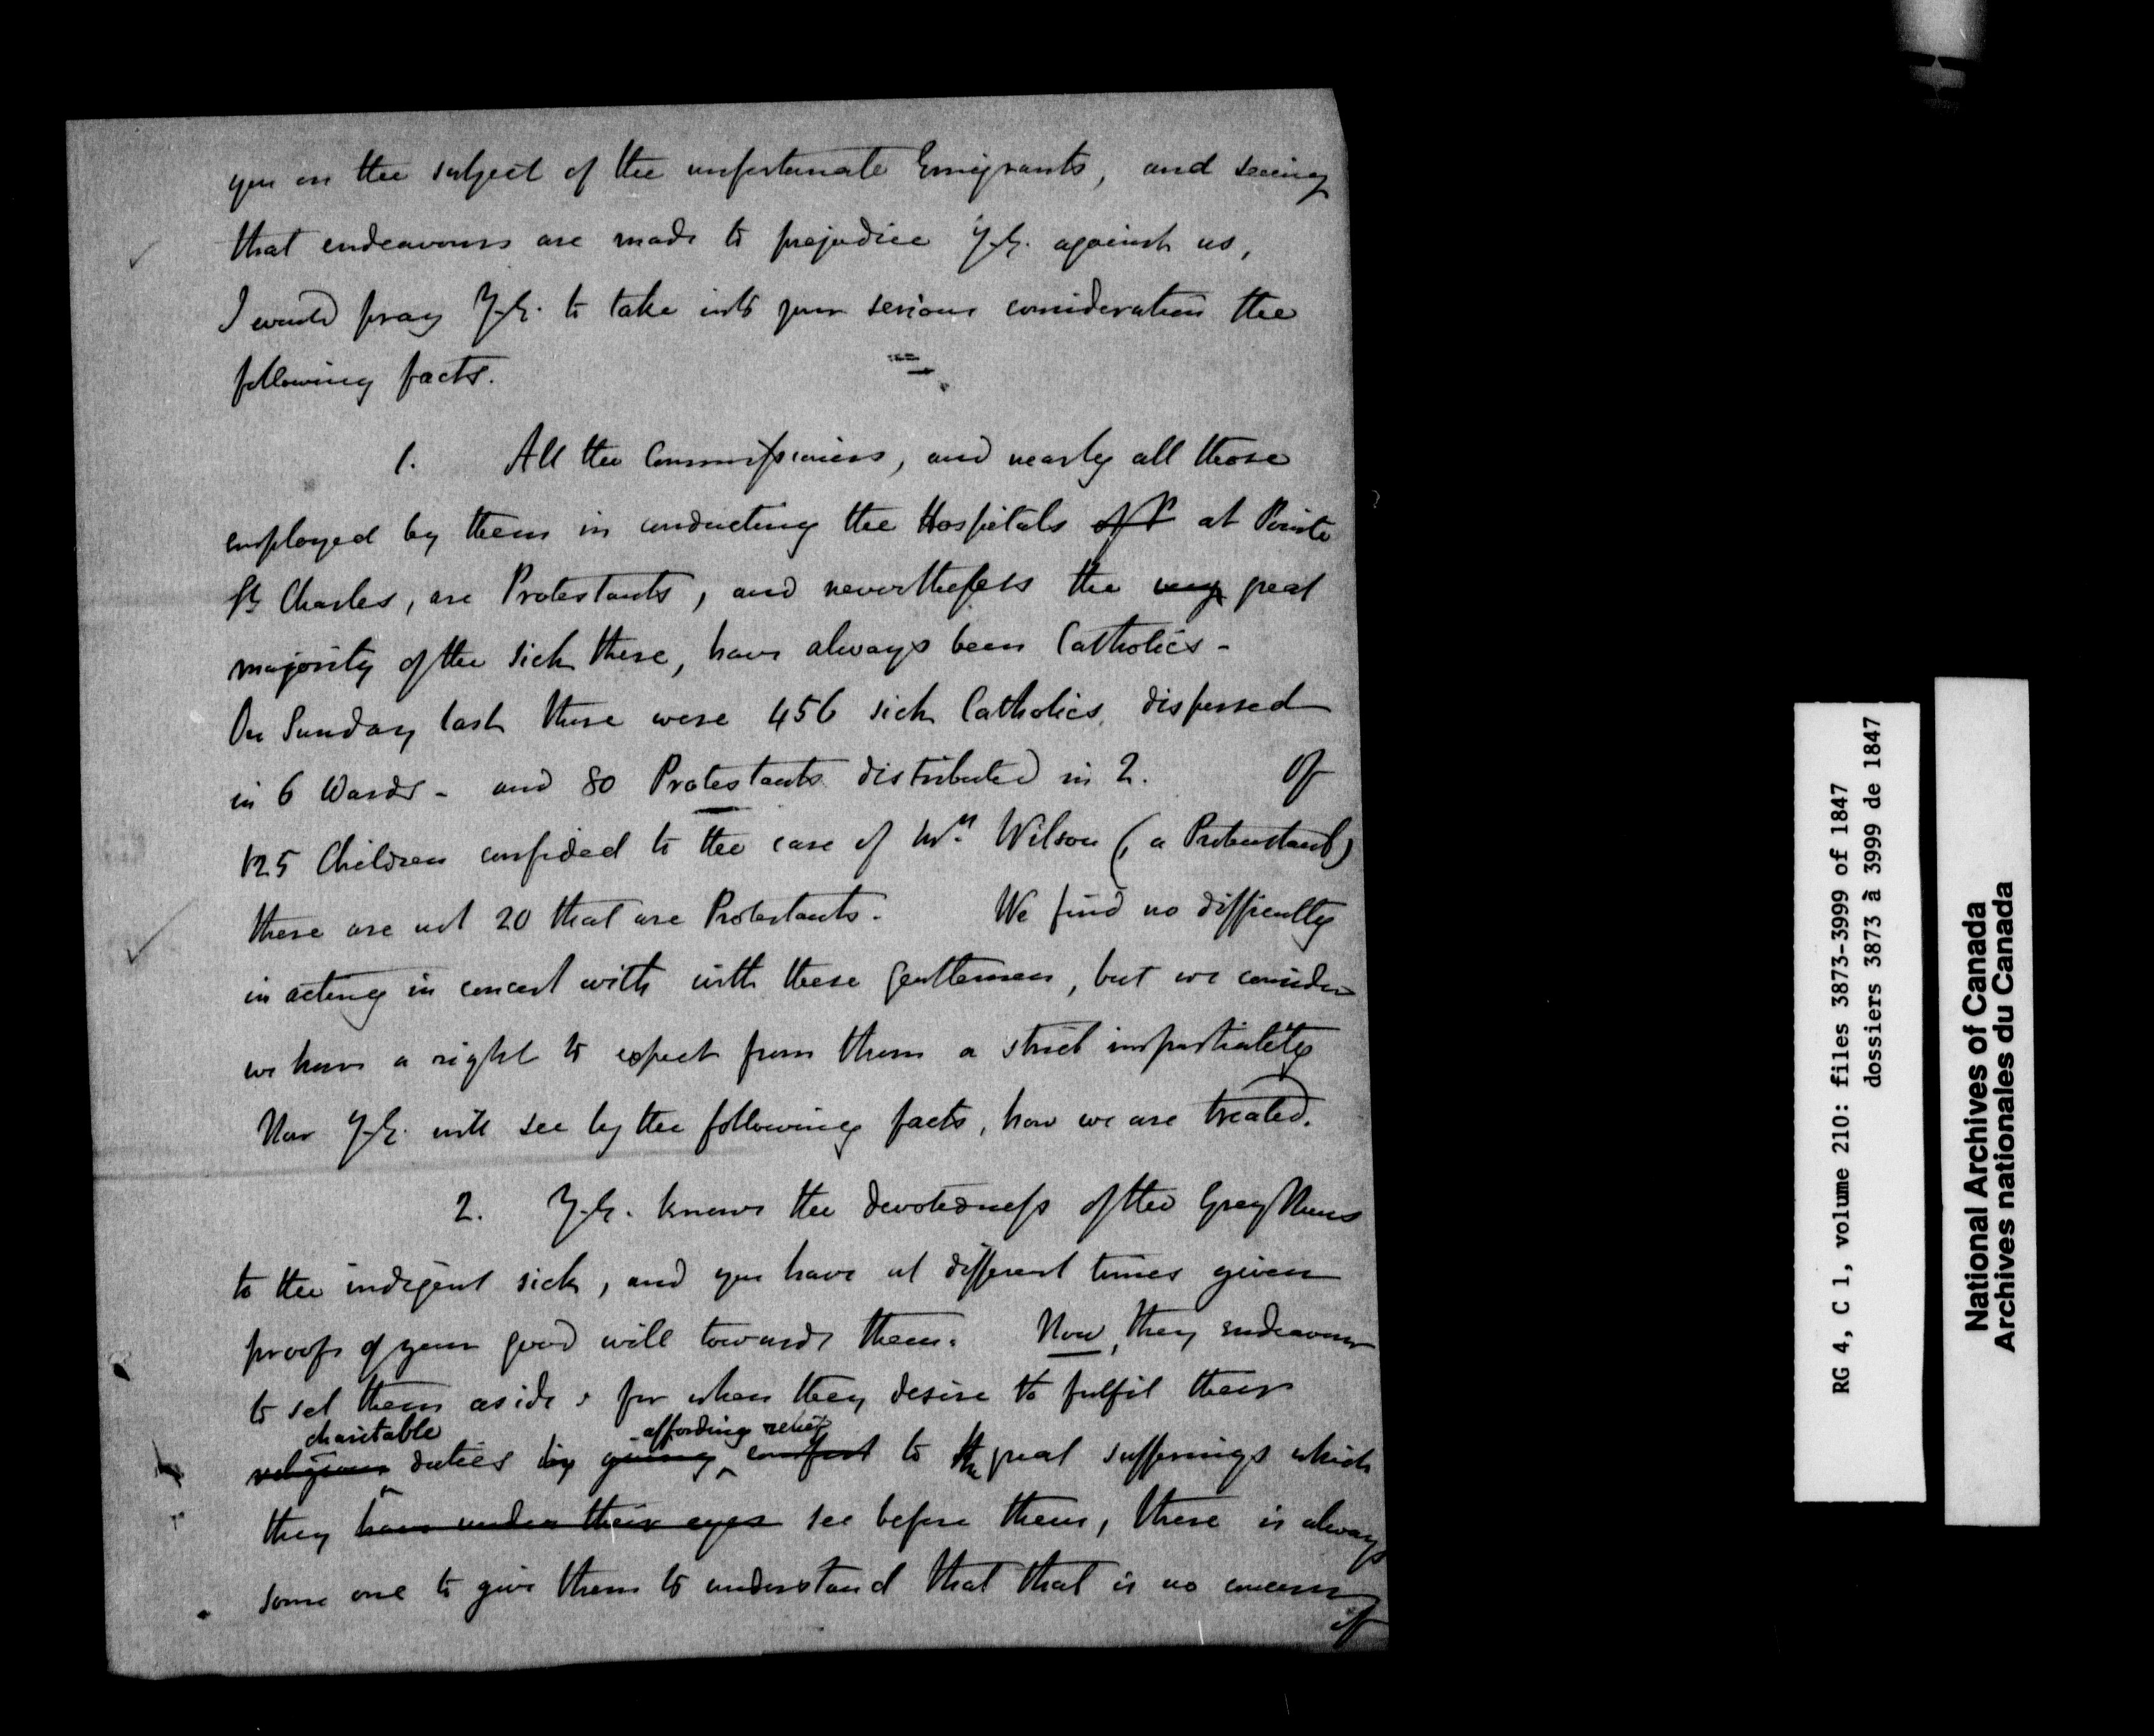 you on the subject of the unfortunate Emigrants, and seeing
that endeavours are made to prejudice Y.E. against us,
I would pray Y.E. to take into your serious consideration the
following facts.
1. All the Commissioners, and nearly all those
employed by them in conducting the Hospitals of P at Pointe
St Charles, are Protestants, and nevertheless the very great
majority of the sick there, have always been Catholics -
On Sunday last there were 456 sick Catholics, dispersed
in 6 Wards - and 80 Protestants distributed in 2. Of
125 Children confided to the care of Mrs. Wilson (a Protestant)
there are not 20 that are Protestants. We find no difficulty
in acting in concert with with these gentlemen, but we consider
we have a right to expect from them a strict impartiality
Now Y.E. will see by the following facts, how we are treated.
2. Y.E. knows the devotedness of the Grey Nuns
to the indigent sick, and you have at different times given
proofs of your good will towards them. Now, they endeavour
to set them aside; for when they desire to fulfil their
charitable affording relief
religious duties by giving comfort to the great sufferings which
they have under their eyes see before them, there is always
some one to give them to understand that that is no concern
of
RG 4, C 1, volume 210: files 3873-3999 of 1847
dossiers 3873 à 3999 de 1847
National Archives of Canada
Archives nationales du Canada